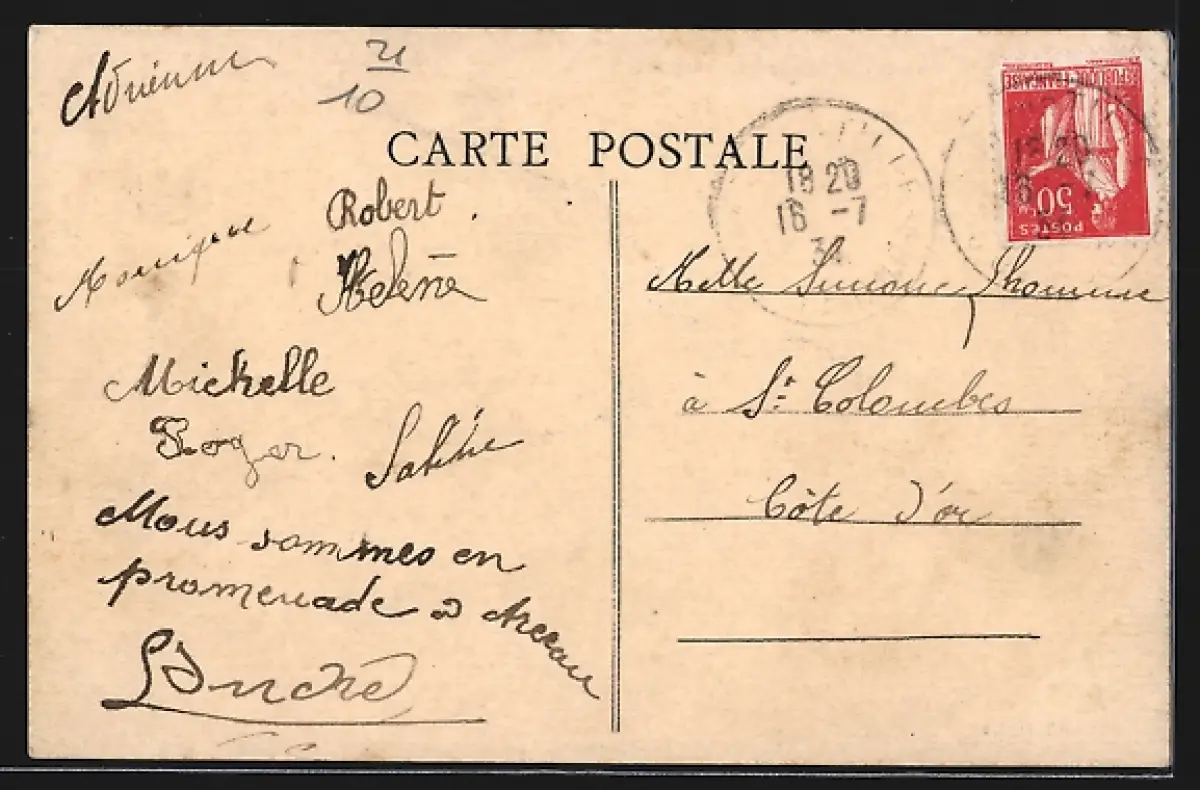 Adrienne
21
10
CARTE POSTALE
Robert.
Monique
Helène
Michelle
Roger.
Sabine
Nous sommes en
promenade à Arceau
André
18 20
16 -7
3
REPUBLIQUE FRANÇAISE
50c
POSTES
18 20
16
Melle Simone Lhomme
à Ste Colombes
Côte d'or